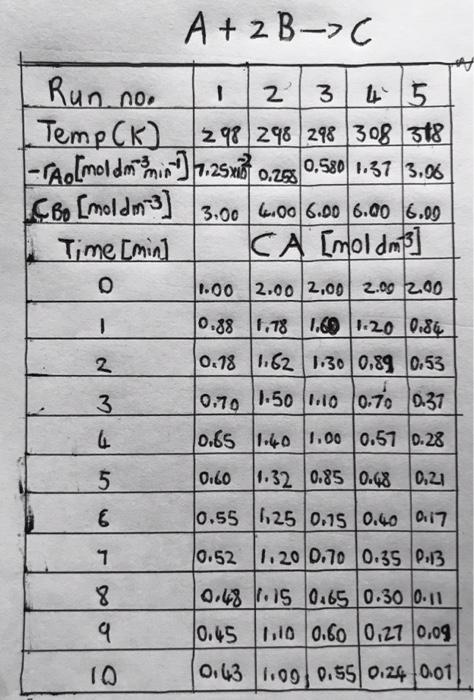 A + 2B —> C
Run no. 1 2 3 4 5
Temp (K) 298 298 298 308 318
-rA0 [mol dm⁻³ min⁻¹] 7.25x10⁻² 0.258 0.580 1.37 3.06
CB0 [mol dm⁻³] 3.00 4.00 6.00 6.00 6.00
Time [min] CA [mol dm⁻³]
0 1.00 2.00 2.00 2.00 2.00
1 0.88 1.78 1.60 1.20 0.84
2 0.78 1.62 1.30 0.89 0.53
3 0.70 1.50 1.10 0.70 0.37
4 0.65 1.40 1.00 0.57 0.28
5 0.60 1.32 0.85 0.48 0.21
6 0.55 1.25 0.75 0.40 0.17
7 0.52 1.20 0.70 0.35 0.13
8 0.48 1.15 0.65 0.30 0.11
9 0.45 1.10 0.60 0.27 0.09
10 0.43 1.00 0.55 0.24 0.07